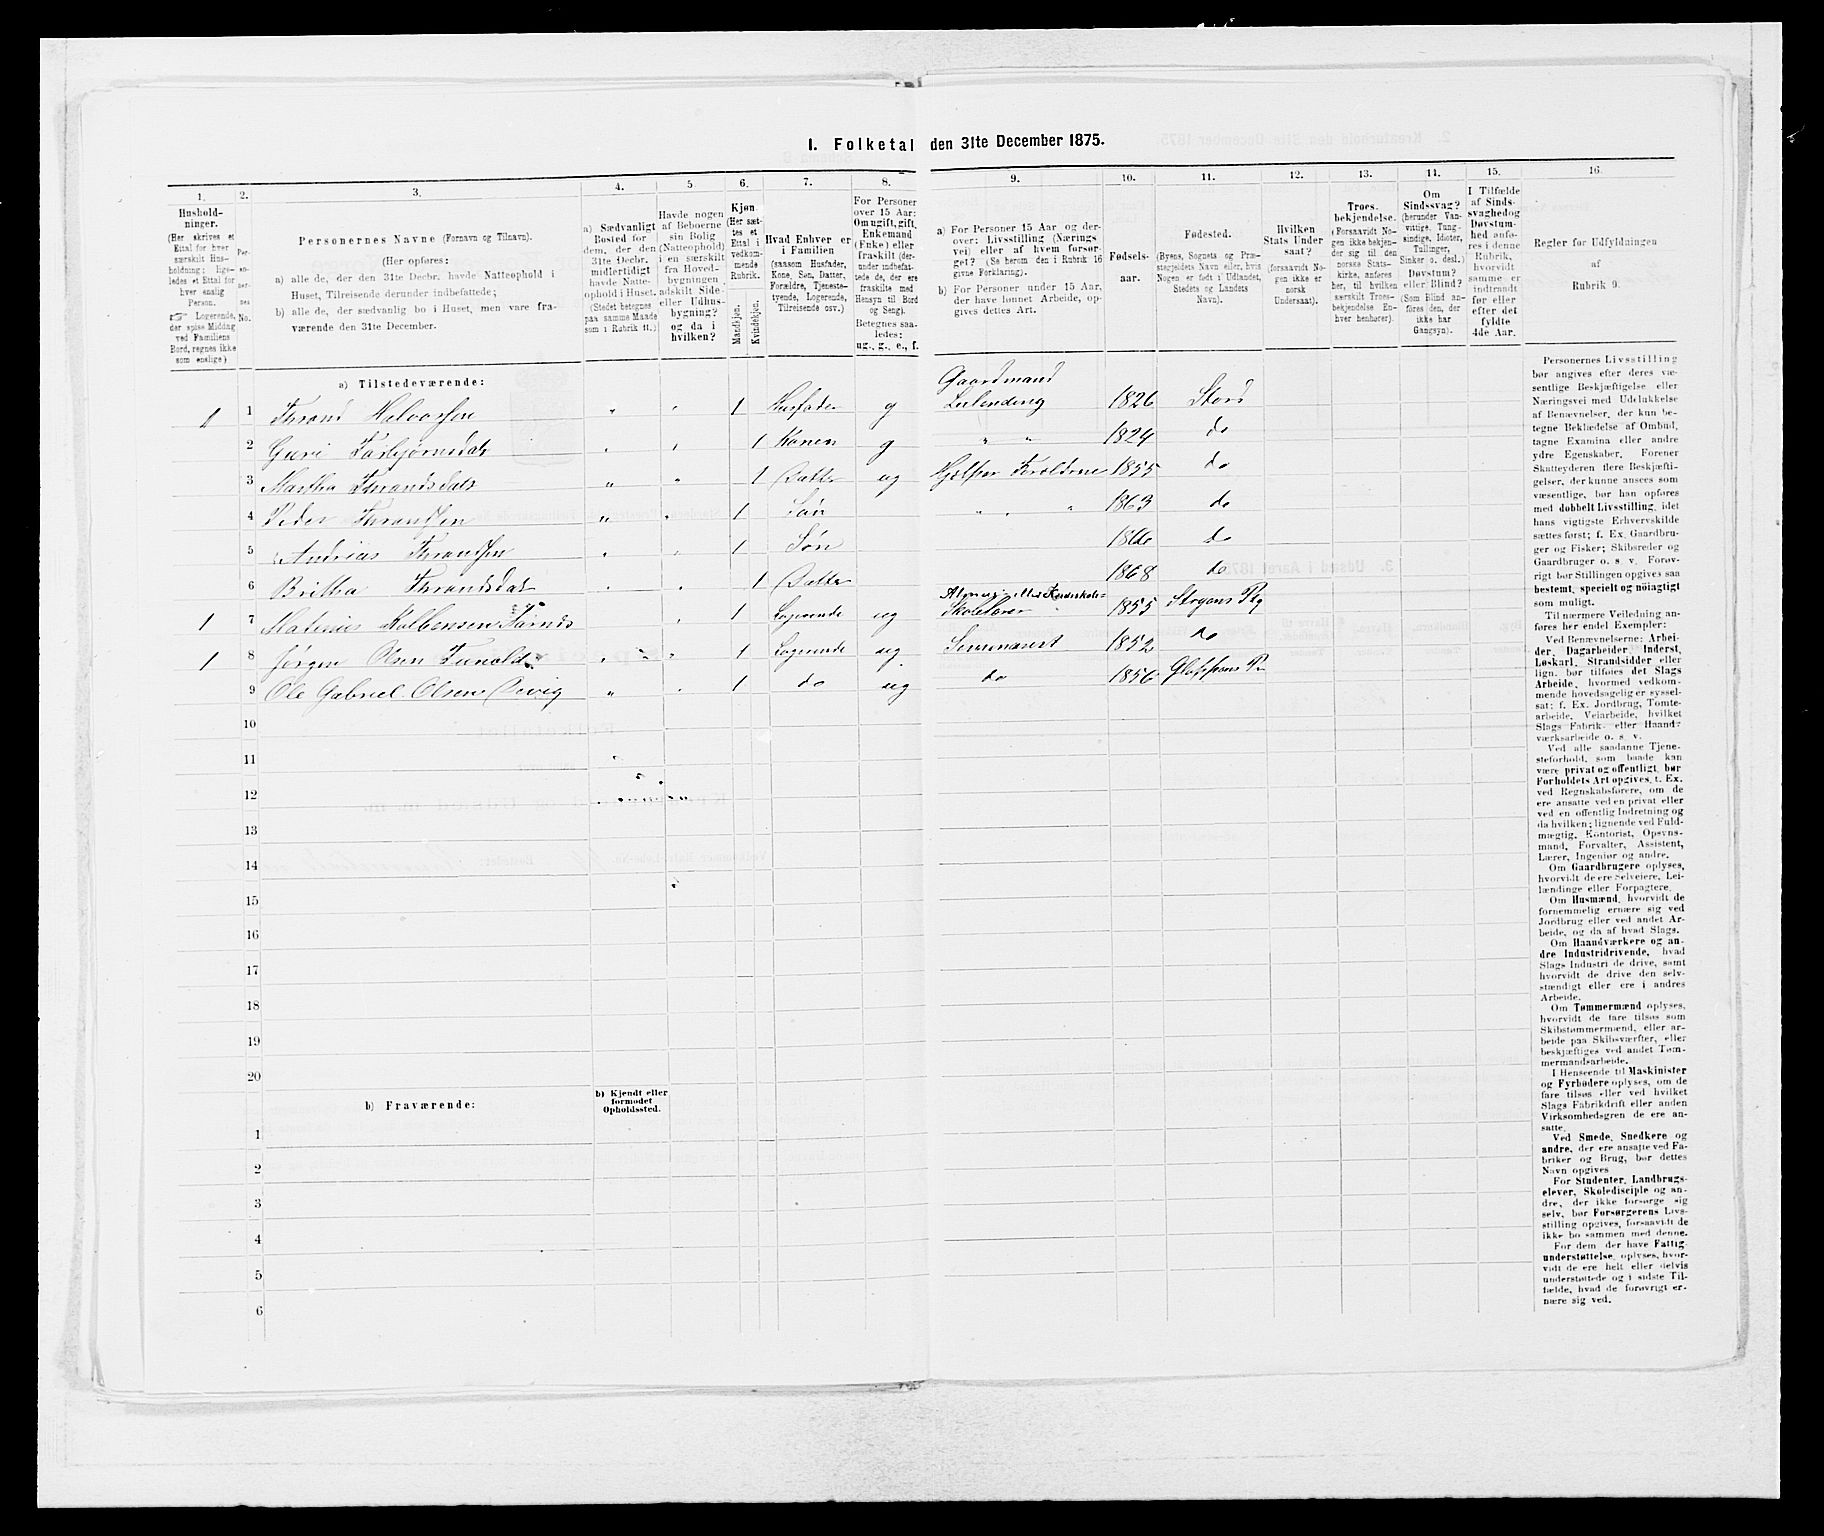 I. Folketal den 31te December 1875.
1. 2. 3. 4. 5. 6. 7. 8. 9. 10. 11. 12. 13. 14. 15. 16.
Hushold-
ninger.
(Her skrives et
Ettal for hver
særskilt Hus-
holdning; lige-
ledes et Ettal for
hver enslig
Person.
☞ Logerende,
der spise Middag
ved Familiens
Bord, regnes ikke
som enslige)
Per-
so-
ner-
nes
No.
Personernes Navne (Fornavn og Tilnavn).
(Her opføres:
a) alle de, der den 31te Decbr. havde Natteophold i
Huset, Tilreisende derunder indbefattede;
b) alle de, der sædvanlig bo i Huset, men vare fra-
værende den 31te December.
a) Sædvanligt
Bosted for
dem, der den
31te Decbr.
midlertidigt
havde Natte-
ophold i Huset.
(Stedet betegnes
paa samme Maade
som i Rubrik 11.)
Havde nogen
af Beboerne
sin Bolig
(Natteophold)
i en særskilt
fra Hoved-
bygningen
adskilt Side-
eller Udhus-
bygning?
og da i
hvilken?
Kjøn.
(Her sæt-
tes et
Ettal i
vedkom-
mende
Rubrik.
Mandkjøn.
Kvindekjøn.
Hvad Enhver er
i Familien
(saasom Husfader,
Kone, Søn, Datter,
Forældre, Tjeneste-
tyende, Logerende,
Tilreisende osv.)
For Personer
over 15 Aar:
Om ugift, gift,
Enkemand
(Enke) eller
fraskilt (der-
under indbefat-
tede de, der ere
fraskilte med
Hensyn til Bord
og Seng).
Betegnes saa-
ledes:
ug., g., e., f.
a) For Personer 15 Aar og der-
over: Livsstilling (Nærings
vei) eller af hvem forsør-
get? (Se herom den i Rubrik 16
givne Forklaring).
b) For Personer under 15 Aar,
der have lønnet Arbeide, op-
gives dettes Art.
Fødsels-
aar.
Fødested.
(Byens, Sognets og Præ-
stegjeldets Navn eller, hvis
Nogen er født i Udlandet,
Stedets og Landets
Navn).
Hvilken
Stats Under
saat?
(forsaavidt No-
gen ikke er
norsk
Undersaat).
Troes-
bekjendelse.
(Forsaavidt No-
gen ikke bekjen-
der sig til den
norske Stats-
kirke, anføres
her, til hvilken
særskilt Troes-
bekjendelse En-
hver henhører).
Om
Sindssvag?
(herunder Van-
vittige, Tung-
sindige, Idioter,
Tullinger,
Sinker o. desl.)
Døvstum?
eller Blind?
(Som Blind an-
føres den, der
ikke har
Gangsyn).
I Tilfælde
af Sinds-
svaghed og
Døvstum-
hed anfø-
res i denne
Rubrik,
hvorvidt
samme er
indtraadt
før eller
efter det
fyldte
4de Aar.
Regler for Udfyldningen
af
Rubrik 9.
a) Tilstedeværende:
Gaardmand
1 1 Thrond Halvorsen " " 1 Husfader g Leilending 1826 Stord
2 Guri Torbjørnsdat " " 1 Konen g " " 1824 do
3 Martha Throndsdat " " 1 Datter ug Hjelper Foreldrene 1855 do
4 Peder Throndsen " " 1 Søn " " " 1863 do
5 Andrias Throndsen " " 1 Søn 1866 do
6 Britha Throndsdat " " 1 Datter 1868 do
1 7 Kolbensen " 1 Logerende ug Skolelærer 1855 Stryens Pg
1 8 Jørgen Olsen " " 1 Logerende ug Seminarist 1852 do
9 Ole Gabriel Olsen " " 1 do ug do 1856
10
11
12
13
14
15
16
17
18
19
20
b) Fraværende:
b) Kjendt eller
formodet
Opholdssted.
1
2
3
4
5
6
Personernes Livsstilling
bør angives efter deres væ-
sentlige Beskjæftigelse eller
Næringsvei med Udelukkelse
af Benævnelser, der kun be-
tegne Beklædelse af Ombud,
tagne Examina eller andre
ydre Egenskaber. Forener
Skatteyderen flere Beskjæfti-
gelser, der kunne ansees som
væsentlige, bør han opføres
med dobbelt Livsstilling, idet
hans vigtigste Erhvervskilde
sættes først; f. Ex. Gaardbru-
ger og Fisker; Skibsreder og
Gaardbruger o. s. v. Forøv-
rigt bør Stillingen opgives saa
bestemt, specielt og nøiagtigt
som muligt.
Til nærmere Veiledning an-
føres her endel Exempler:
Ved Benævnelserne: Arbei-
der, Dagarbeider, Inderst,
Løskarl, Strandsidder eller
lign. bør tilføies det Slags
Arbeide, hvormed vedkom-
mende hovedsagelig er syssel-
sat; f. Ex. Jordbrug, Tomte-
arbeide, Veiarbeide, hvilket
Slags Fabrik- eller Haand-
værksarbeide o. s. v.
Ved alle saadanne Tjene-
steforhold, som baade kan
være privat og offentligt, bør
Forholdets Art opgives, t. Ex.
ved Regnskabsførere, om de
ere ansatte ved en privat eller
ved en offentlig Indretning og
da hvilken; lignende ved Fuld-
mægtig, Kontorist, Opsyns-
mand, Forvalter, Assistent,
Lærer, Ingeniør og andre.
Om Gaardbrugere oplyses,
hvorvidt de ere Selveiere, Lei-
lændinge eller Forpagtere.
Om Husmænd, hvorvidt de
fornemmelig ernære sig ved
Jordbrug eller ved andet Ar-
beide, og da af hvad Slags.
Om Haandværkere og an-
dre Industridrivende, hvad
Slags Industri de drive, samt
hvorvidt de drive den selv-
stændigt eller ere i andres
Arbeide.
Om Tømmermænd oplyses,
hvorvidt de fare tilsøs som
Skibstømmermænd, eller ar-
beide paa Skibsværfter, eller
beskjæftiges ved andet Tøm-
mermandsarbeide.
I Henseende til Maskinister
og Fyrbødere oplyses, om de
fare tilsøs eller ved hvilket
Slags Fabrikdrift eller anden
Virksomhedsgren de ere an-
satte.
Ved Smede, Snedkere og
andre, der ere ansatte ved Fa-
briker og Brug, bør dettes
Navn opgives
For Studenter, Landbrugs-
elever, Skoledisciple og an-
dre, der ikke forsørge sig
selv, bør Forsørgerens Livs-
stilling opgives, forsaavidt de
ikke bo sammen med denne.
For dem, der have Fattig-
understøttelse, oplyses, hvor-
vidt de ere helt eller delvis
understøttede og i sidste Til-
fælde, hvad de forøvrigt er-
nære sig ved.